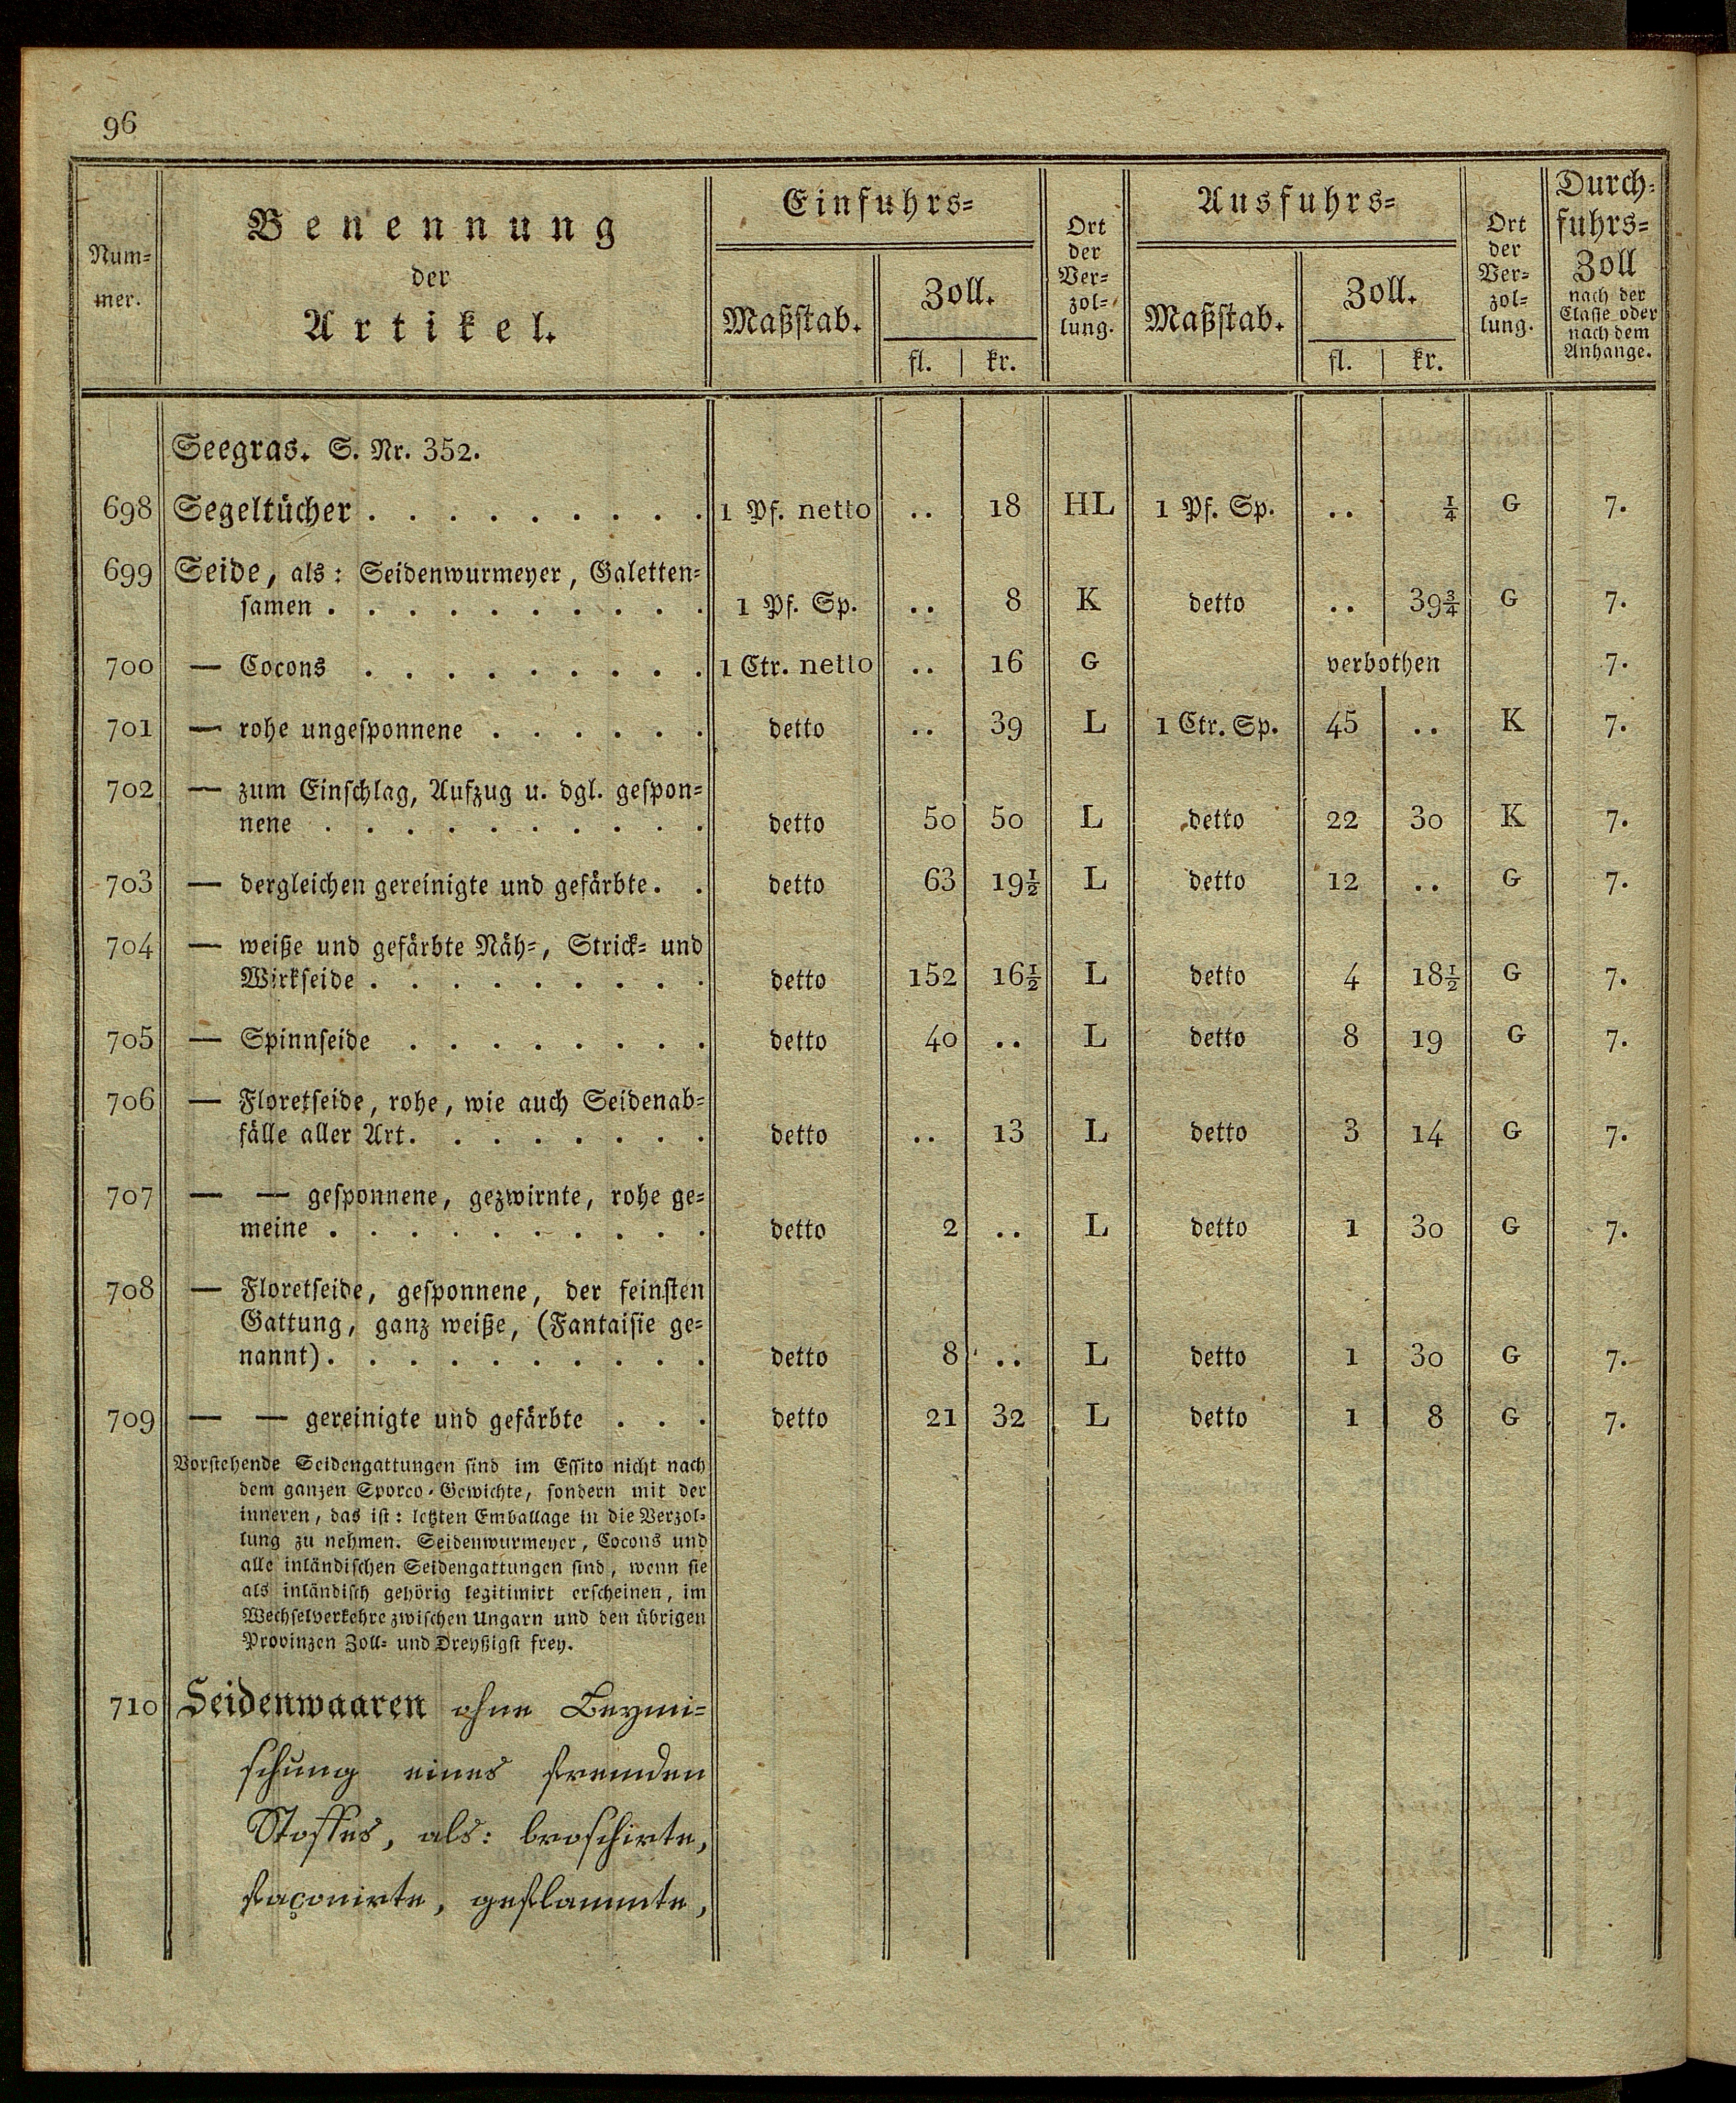 96
Num-
mer.
Benennung
der
Artikel.
Einfuhrs-
Maßstab.
Zoll.
fl. | kr.
Ort
der
Ver-
zol-
lung.
Ausfuhrs-
Maßstab.
Zoll.
fl. | kr.
Ort
der
Ver-
zol-
lung.
Durch-
fuhrs-
Zoll
nach der
Classe oder
nach dem
Anhange.
Seegras. S. Nr. 352.
698 Segeltücher . . . . . . . . . 1 Pf. netto .. 18 HL 1 Pf. Sp. .. ¼ G 7.
699 Seide, als: Seidenwurmeyer, Galetten-
samen . . . . . . . . . . 1 Pf. Sp. .. 8 K detto .. 39¾ G 7.
700 — Cocons . . . . . . . . . 1 Ctr. netto .. 16 G verbothen 7.
701 — rohe ungesponnene . . . . . . detto .. 39 L 1 Ctr. Sp. 45 .. K 7.
702 — zum Einschlag, Aufzug u. dgl. gespon-
nene . . . . . . . . . . detto 50 50 L detto 22 30 K 7.
703 — dergleichen gereinigte und gefärbte . . detto 63 19½ L detto 12 .. G 7.
704 — weiße und gefärbte Näh-, Strick- und
Wirkseide . . . . . . . . . detto 152 16½ L detto 4 18½ G 7.
705 — Spinnseide . . . . . . . . detto 40 .. L detto 8 19 G 7.
706 — Floretseide, rohe, wie auch Seidenab-
fälle aller Art . . . . . . . . detto .. 13 L detto 3 14 G 7.
707 — — gesponnene, gezwirnte, rohe ge-
meine . . . . . . . . . . detto 2 .. L detto 1 30 G 7.
708 — Floretseide, gesponnene, der feinsten
Gattung, ganz weiße, (Fantaisie ge-
nannt) . . . . . . . . . . detto 8 .. L detto 1 30 G 7.
709 — — gereinigte und gefärbte . . . detto 21 32 L detto 1 8 G 7.
Vorstehende Seidengattungen sind im Essito nicht nach
dem ganzen Sporco-Gewichte, sondern mit der
inneren, das ist: letzten Emballage in die Verzol-
lung zu nehmen. Seidenwurmeyer, Cocons und
alle inländischen Seidengattungen sind, wenn sie
als inländisch gehörig legitimirt erscheinen, im
Wechselverkehre zwischen Ungarn und den übrigen
Provinzen Zoll- und Dreyßigst frey.
710 Seidenwaaren ohne Beymi-
schung eines fremden
Stoffes, als: broschirte,
façonirte, geflammte,